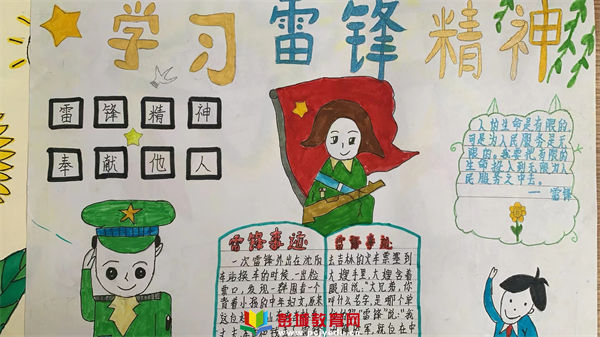 学习雷锋精神
雷锋精神
奉献他人
人的生命是有限的
可是为人民服务是无
限的。我要把有限的
生命投入到无限为人
民服务之中去。
一雷锋
雷锋事迹
一次雷锋外出在沈阳
车站换车的时候,一出检
票口,发现一群围着一个
背着小孩的中年妇女,原来
这位
雷锋事迹
去吉林的火车票塞到
大嫂手里,大嫂含着
眼泪说:"大兄弟,你
叫什么名字,是哪个单
雷锋说:"我
解放军,就住在中
彭城教育网